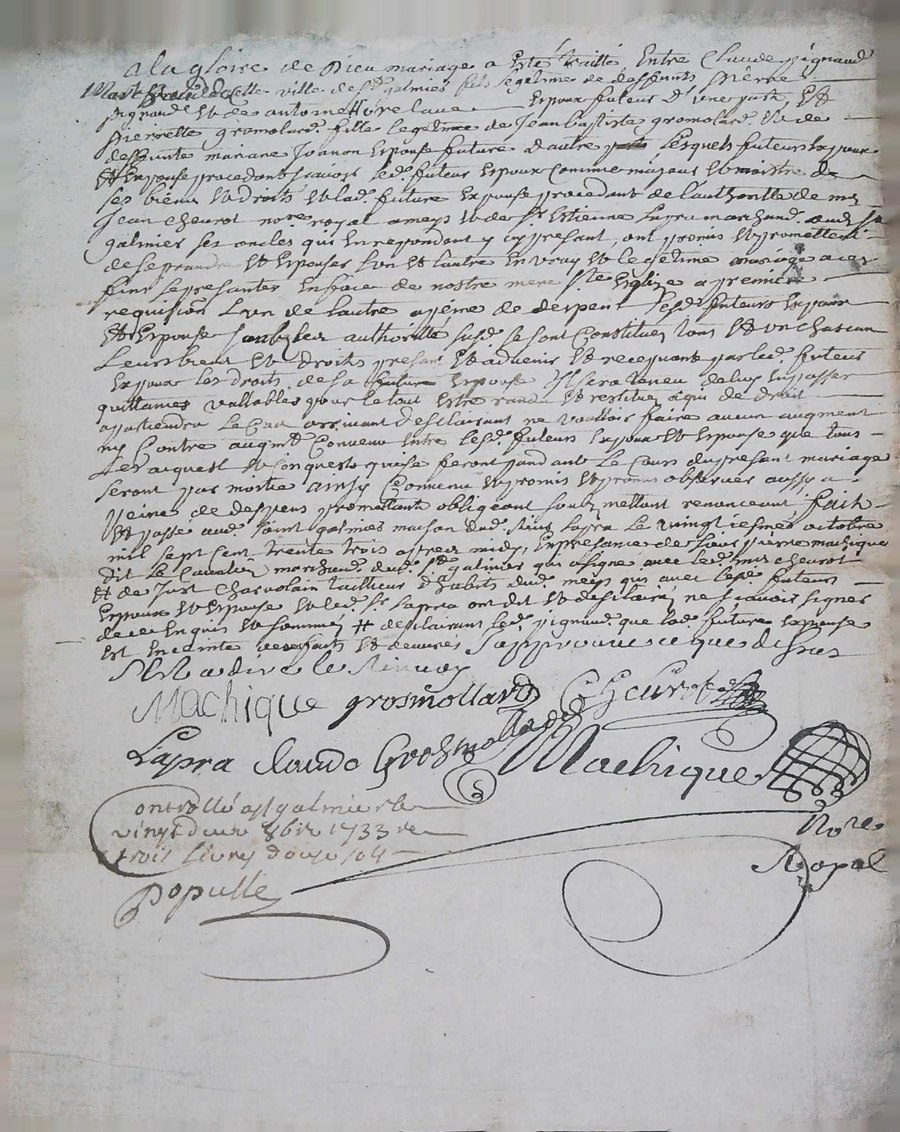 a la gloire de Dieu mariage a esté traitté Entre Claude pignaud
Mar de cette ville de St galmier fils legitime de deffunts pierre
pignaud Et de antoinette relave Espoux futeur d'une part, Et
pierrette gromolard fille legitime de Jean baptiste gromolard Et de
deffunte mariane Joanon Espouse future d'autre part Lesquels futeurs Espoux
Et Espouse procedant sçavoir led. futeur Espoux Comme majeur Et maistre de
ses biens Et droits Et lad. future Espouse procedant de l'authoritté de mre
Jean cheurot nore royal a meys Et de Sr Estienne Lapra marchand aud. St
galmier ses oncles qui En repondent y cy presant, ont promis Et promettent
de se prendre Et Espouser L'un Et L'autre En vray Et legitime mariage a ces
fins se presanter En face de nostre mere Ste Eglize a premiere
requision L'un de L'autre a peine de despens lesd. futeurs Espoux
Et Espouse soubz les authorittés susd. se sont Constitués tous Et un chascun
Leurs biens Et droits presant Et advenir Et recequant par led. futeur
Espoux Les droits de sa future Espouse Il sera tenu de luy En passer
quittances vallables pour le tout Estre randu Et restitué a qui de droit
apartiendra Le Cas arrivant desclairant ne vouloir faire aucun augment
ny Contre augmt Convenu Entre lesd. futeurs Espoux Et Espouse que tous
Les acquest Et Conquests qui se feront pandant Le Cours du presant mariage
seront par moitié ainsy Convenu Et promis Et promis observer aussy a
peines de despens promettant obligeant soubzmettant renonceant fait
Et passé aud. saint galmier maison dud. sieur Lapra Le vingtiesme octobre
mil sept cent trente trois apres midy, En presance de sieur pierre machique
dit Le Cavalier marchand dud. St galmier qui a signé avec led. mre cheurot
Et de Just Charvolain tailleur d'habits dud. meys qui avec lesd. futeurs
Espoux Et Espouse Et led. Sr Lapra ont dit Et desclairé ne sçavoir signer
de ce Enquis Et sommés # desclairant led. pignaud que lad. future Espouse
Est Enceinte de ses faits Et œuvres J'approuve ce que dessus
C'Est a dire le Renvoy
Machique grosmollard Cheurot
Lapra Claude Grosmollard Machique
Nore
Royal
Controllé a St galmier le
vingt deux 8bre 1733 re
trois livres douze sols
Populle